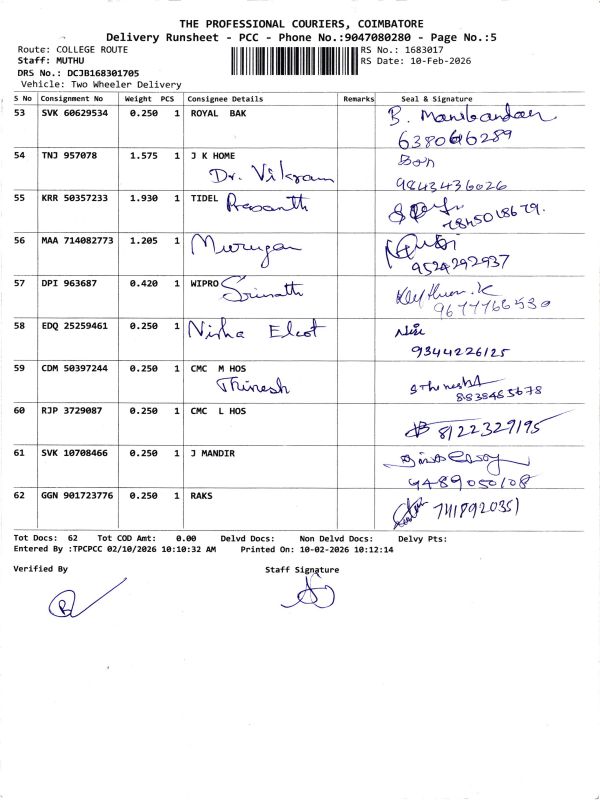 THE PROFESSIONAL COURIERS, COIMBATORE
Delivery Runsheet - PCC - Phone No.:9047080280 - Page No.:5
Route: COLLEGE ROUTE
RS No.: 1683017
Staff: MUTHU
RS Date: 10-Feb-2026
DRS No.: DCJB168301705
Vehicle: Two Wheeler Delivery
S No Consignment No Weight PCS Consignee Details Remarks Seal & Signature
53 SVK 60629534 0.250 1 ROYAL BAK B. Manibandan
6380616289
54 TNJ 957078 1.575 1 J K HOME
Dr. Vikram 9843436026
55 KRR 50357233 1.930 1 TIDEL Prasanth
7845018679.
56 MAA 714082773 1.205 1 Murugan
9524292937
57 DPI 963687 0.420 1 WIPRO Srinath
9677766530
58 EDQ 25259461 0.250 1 Nisha Elcot
9344226125
59 CDM 50397244 0.250 1 CMC M HOS
Thinesh
8838465678
60 RJP 3729087 0.250 1 CMC L HOS
8122329195
61 SVK 10708466 0.250 1 J MANDIR
9489050108
62 GGN 901723776 0.250 1 RAKS 7418920351
Tot Docs: 62 Tot COD Amt: 0.00 Delvd Docs: Non Delvd Docs: Delvy Pts:
Entered By :TPCPCC 02/10/2026 10:10:32 AM Printed On: 10-02-2026 10:12:14
Verified By Staff Signature